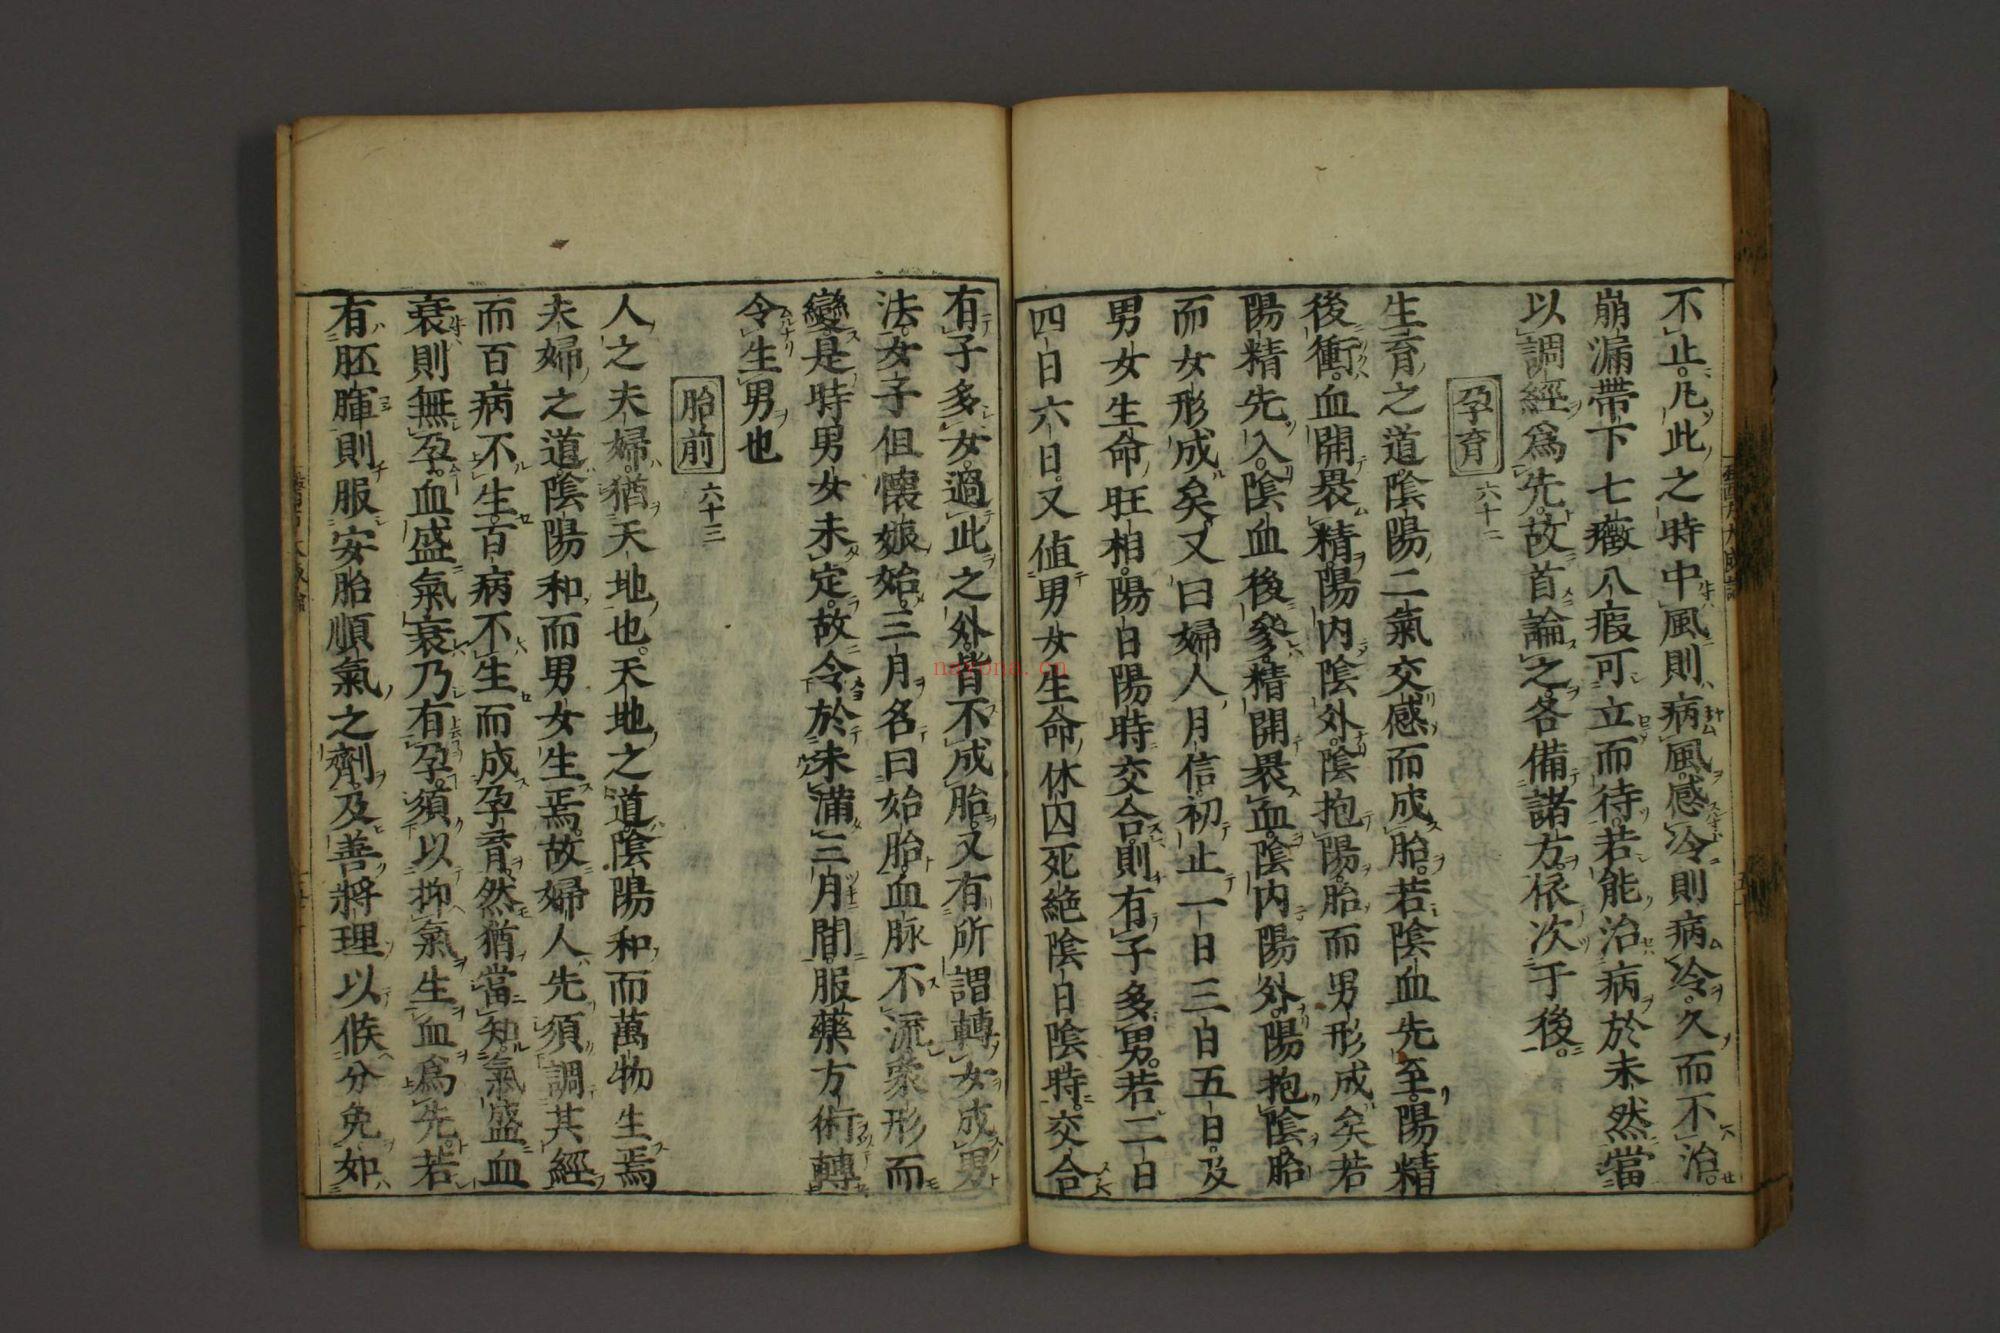 不止凡此之時中風則病風感冷則病冷久而不治
崩漏帶下七癥八瘕可立而待若能治病於未然當
以調經爲先故首論之各備諸方依次于後
孕育 六十二
生育之道陰陽二氣交感而成胎若陰血先至陽精
後衝血開裹精陽内陰外陰抱陽胎而男形成矣若
陽精先入陰血後參精開裹血陰内陽外陽抱陰胎
而女形成矣又曰婦人月信初止一日三日五日及
男女生命旺相陽日陽時交合則有子多男若二日
四日六日又值男女生命休囚死絶陰日陰時交合
有子多女過此之外皆不成胎又有所謂轉女成男
法女子但懷娠始三月名曰始胎血脉不流象形而
變是時男女未定故令於未滿三月間服藥方術轉
令生男也
胎前 六十三
人之夫婦猶天地也天地之道陰陽和而萬物生焉
夫婦之道陰陽和而男女生焉故婦人先須調其經
而百病不生百病不生而成孕育然猶當知氣盛血
衰則無孕血盛氣衰乃有孕須以抑氣生血爲先若
有胚腪則服安胎順氣之劑及善將理以候分免如
nayona.cn